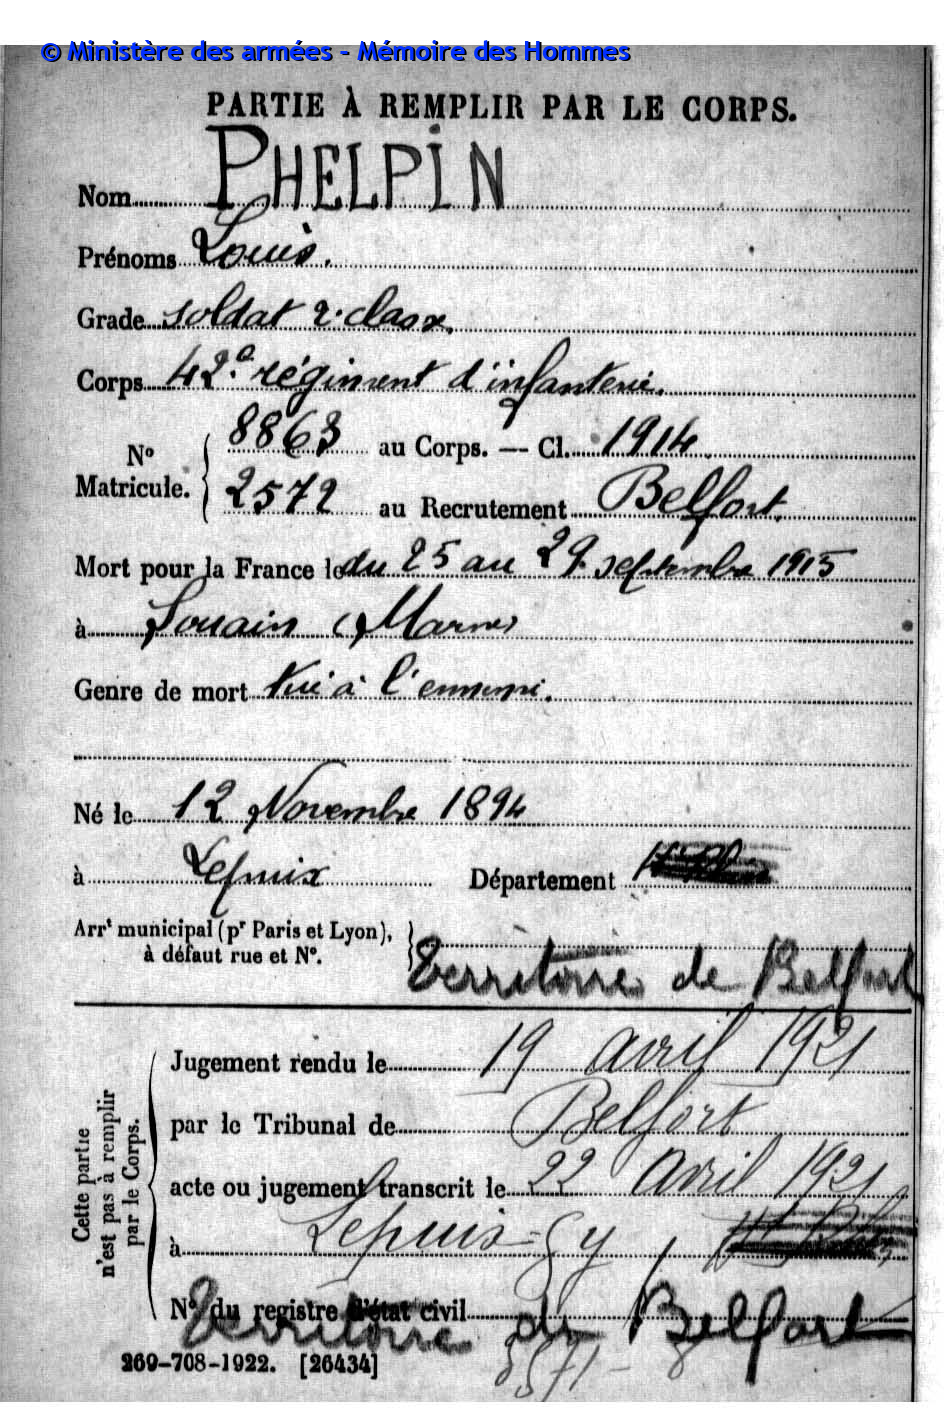 © Ministère des armées - Mémoire des Hommes
PARTIE À REMPLIR PAR LE CORPS.
Nom PHELPIN
Prénoms Louis.
Grade soldat 2e classe.
Corps 42e régiment d'infanterie.
No Matricule. { 8863 au Corps. — Cl. 1914.
2572 au Recrutement Belfort.
Mort pour la France le du 25 au 29 septembre 1915
à Souain (Marne)
Genre de mort tué à l'ennemi.
Né le 12 Novembre 1894
à Lepuix Département
Arrt municipal (pr Paris et Lyon),
à défaut rue et No. } Territoire de Belfort
Cette partie n'est pas à remplir par le Corps.
Jugement rendu le 19 avril 1921
par le Tribunal de Belfort
acte ou jugement transcrit le 22 avril 1921
à Lepuis-Gy,
No du registre d'état civil
Territoire de Belfort
269-708-1922. [26434]